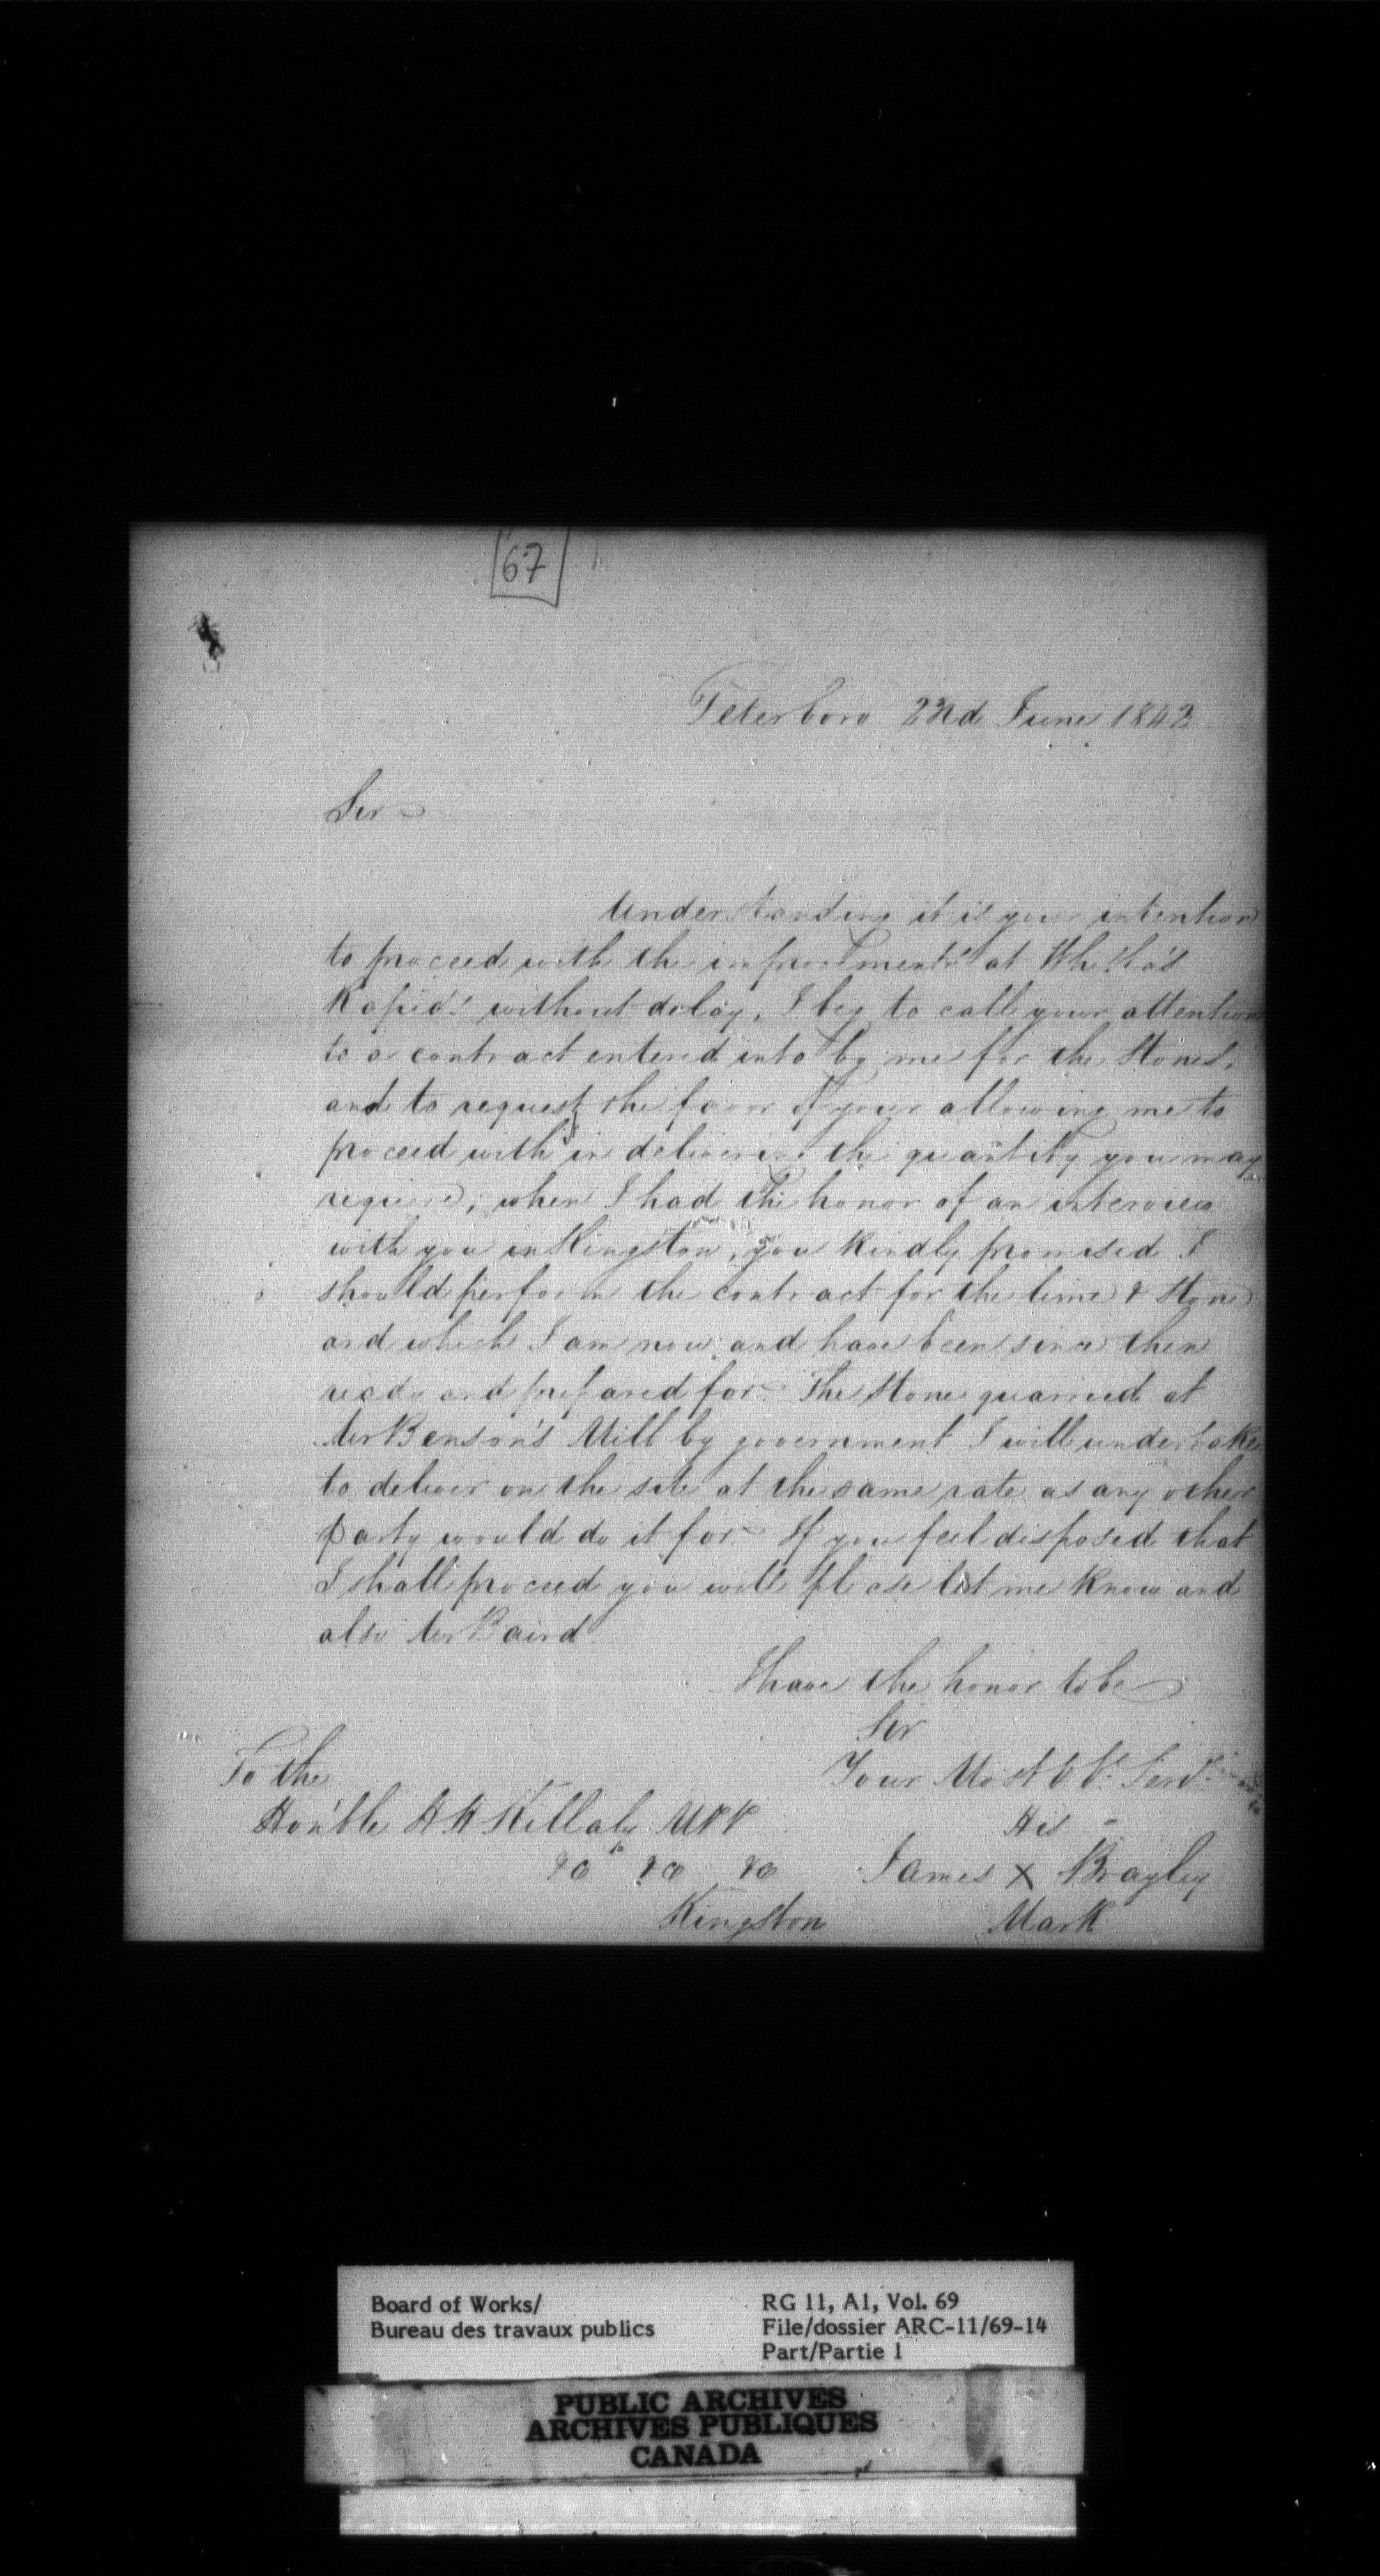 67
Peterboro 22nd June 1842
Sir
Understanding it is your intention
to proceed with the improvements at Whitla's
Rapids without delay, I beg to call your attention
to a contract entered into by me for the Stones,
and to request the favor of your allowing me to
proceed with in delivering the quantity you may
require; when I had the honor of an interview
with you in Kingston, you kindly promised I
should perform the contract for the lime & Stone
and which I am now and have been since then
ready and prepared for. The Stone quarried at
Mr Benson's Mill by government I will undertake
to deliver on the site at the same rate as any other
party would do it for. If you feel disposed that
I shall proceed you will please let me know and
also Mr Baird
I have the honor to be
Sir
Your Most Obt. Servt.
To the
Hon'ble H H Killaly MPP
&c &c &c
Kingston
His
James X Brayley
Mark
Board of Works/
Bureau des travaux publics
RG 11, A1, Vol. 69
File/dossier ARC-11/69-14
Part/Partie 1
PUBLIC ARCHIVES
ARCHIVES PUBLIQUES
CANADA